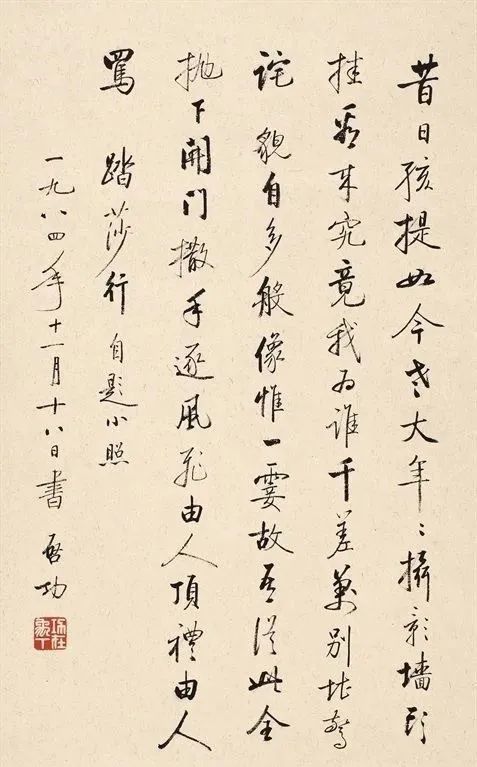 昔日孩提如今老大年〻攝影墻頭
挂看来究竟我为谁千差萬别堪驚
詫貌自多般像惟一霎故吾從此全
抛下開门撒手逐風飛由人頂禮由人
罵 踏莎行 自題小照
一九八四年十一月十八日書 啓功